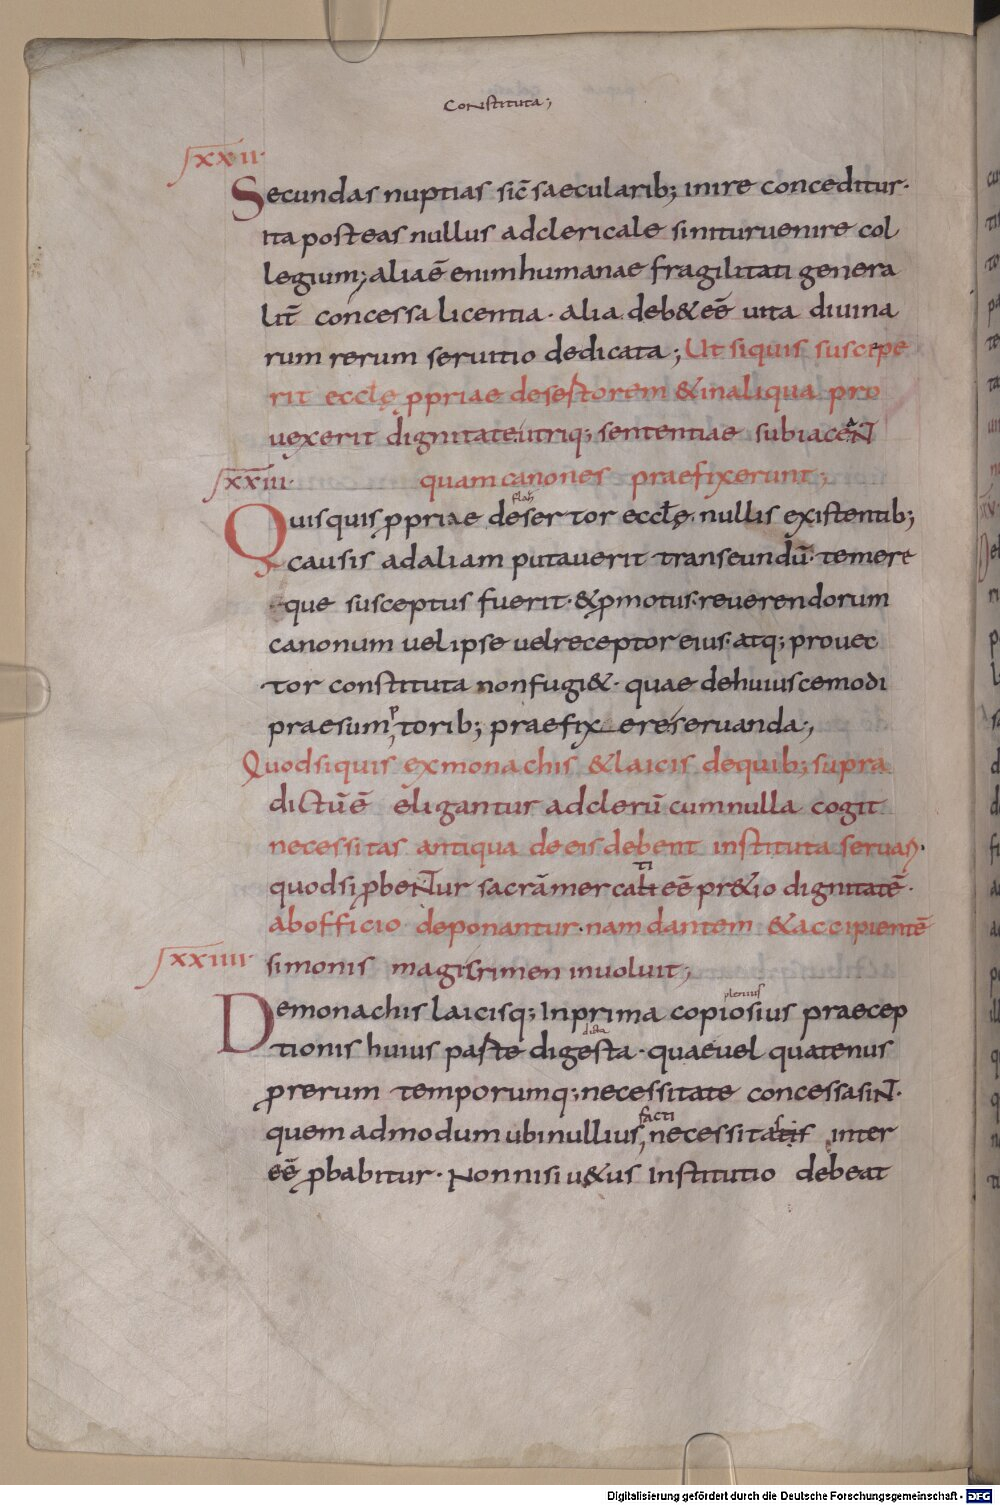 CoNstituta;
xxii·
Secundas nuptias sic̄ saecularib; inire conceditur·
ita posteas nullus adclericale sinituruenire col
legium; aliaē enimhumanae fragilitati genera
lit̄ concessa licentia· alia deb& eē uita diuina
rum rerum seruitio dedicata; Ut siquis suscepe
rit eccl̄ę ꝓpriae desertorem &inaliqua pro
uexerit dignitate utriq; sententiae subiaceaN̄
xxiii· quam canones praefixerunt;
Quisquis ꝓpriae desertor eccl̄ę nullis existentib;
causis adaliam putauerit transeundū· temere
que susceptus fuerit· &ꝓmotus· reuerendorum
canonum uel ipse uelreceptor eius· atq; prouec
tor constituta nonfugi&· quae dehuiuscemodi
praesumptorib; praefix ereseruanda;
Quodsiquis exmonachis &laicis dequib; supra
dictūē eligantur adclerū cumnulla cogit
necessitas antiqua de eis debent instituta seruari·
quodsi ꝓbeNtur sacrām̄ercati eē pr&io dignitatē·
abofficio deponantur· nam dantem &accipientē
xxiiii simonis magiscrimen inuoluit;
plenius
Demonachis laicisq; Inprima copiosius praecep
dicta
tionis huius paste digesta· quaeuel quatenus
ꝓrerum temporumq; necessitate concessasiN̄·
facti
quem admodum ubinullius, necessitatis inter
eē ꝓbabitur· Nonnisi u&us Institutio debeat
Digitalisierung gefördert durch die Deutsche Forschungsgemeinschaft - DFG